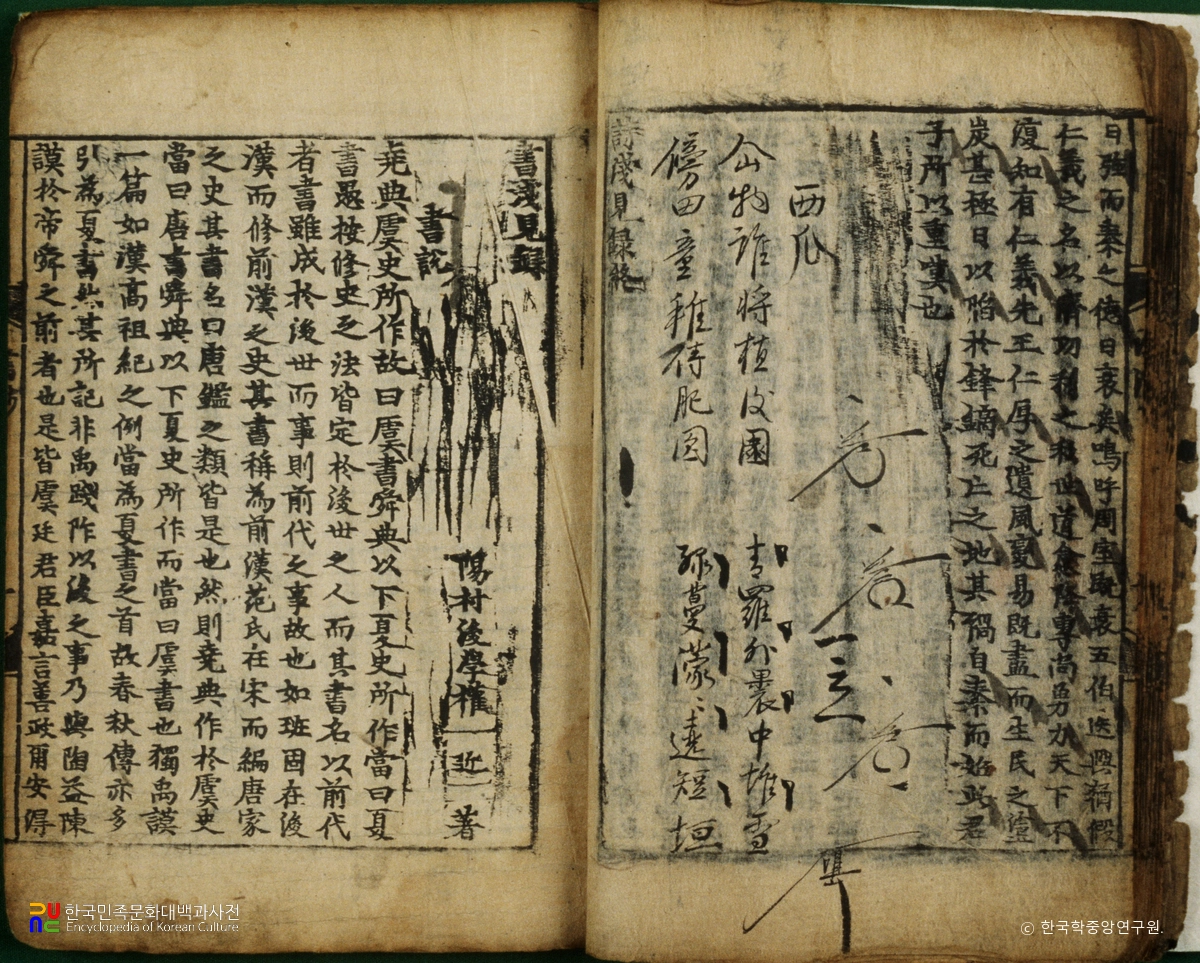 日強而秦之德日衰矣嗚呼周室旣衰五伯迭興猶假
仁義之名以濟功利之私世道愈降專尚勇力天下不
復知有仁義先王仁厚之遺風變易旣盡而生民之塗
炭甚極日以陷於鋒鏑死亡之地其禍自秦而始此君
子所以重嘆也
西瓜
物誰將植後園 青羅外裹中堆雪
傍田童稚待肥圓 綠蔓蒙遶短垣
詩淺見錄終
書淺見錄
陽村後學權 近 著
書說
堯典虞史所作故曰虞書舜典以下夏史所作當曰夏
書愚按修史之法皆定於後世之人而其書名以前代
者書雖成於後世而事則前代之事故也如班固在後
漢而修前漢之史其書稱為前漢范氏在宋而編唐家
之史其書名曰唐鑑之類皆是也然則堯典作於虞史
當曰唐書舜典以下夏史所作而當曰虞書也獨禹謨
一篇如漢高祖紀之例當為夏書之首故春秋傳亦多
引為夏書然其所記非禹踐阼以後之事乃與陶益陳
謨於帝舜之前者也是皆虞廷君臣嘉言善政爾安得
한국민족문화대백과사전
Encyclopedia of Korean Culture
© 한국학중앙연구원.